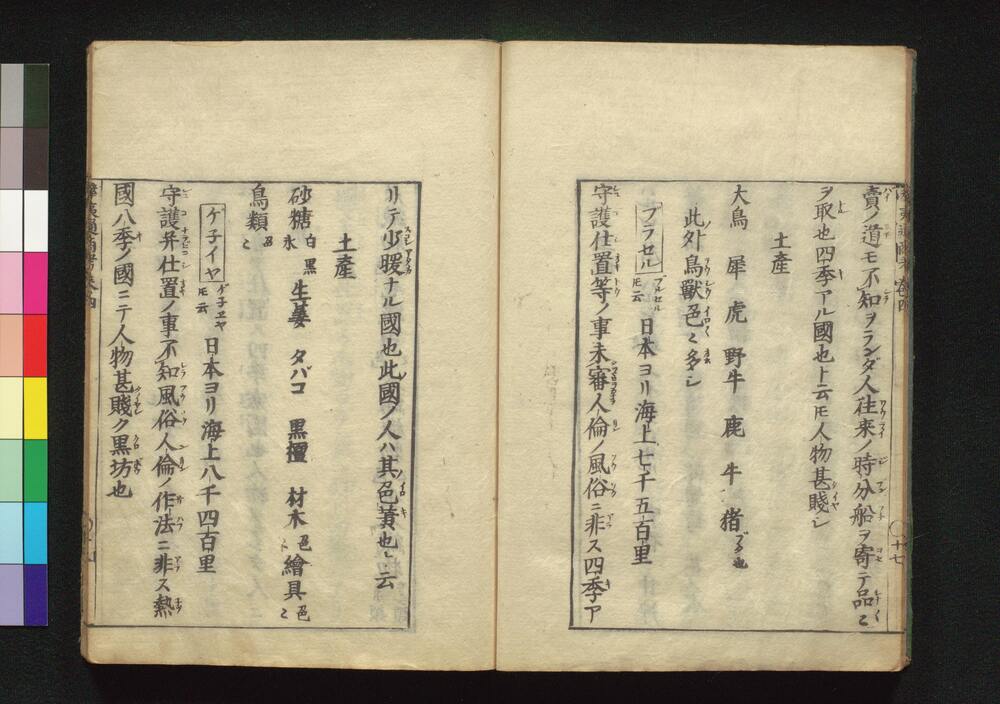 賣ノ道モ不知ヲランダ人往来ノ時分船ヲ寄テ品々
ヲ取也四季アル國也ト云𪜈人物甚賤シ
土產
大鳥 犀 虎 野牛 鹿 牛 猪
此外鳥獸色々多シ
ブラセル ブルセル𪜈云 日本ヨリ海上七千五百里
守護仕置等ノ事未審人倫ノ風俗ニ非ス四季ア
リテ少暖ナル國也此國ノ人ハ其色黄也ト云
土產
砂糖 白 黒 氷 生姜 タバコ 黒檀 材木 色々 繪具 色々
鳥類 色々
ゲ子イヤ ゲ子ヱヤ𪜈云 日本ヨリ海上八千四百里
守護并仕置ノ事不知風俗人倫ノ作法ニ非ス熱
國八季ノ國ニテ人物甚賤ク黒坊也
十七